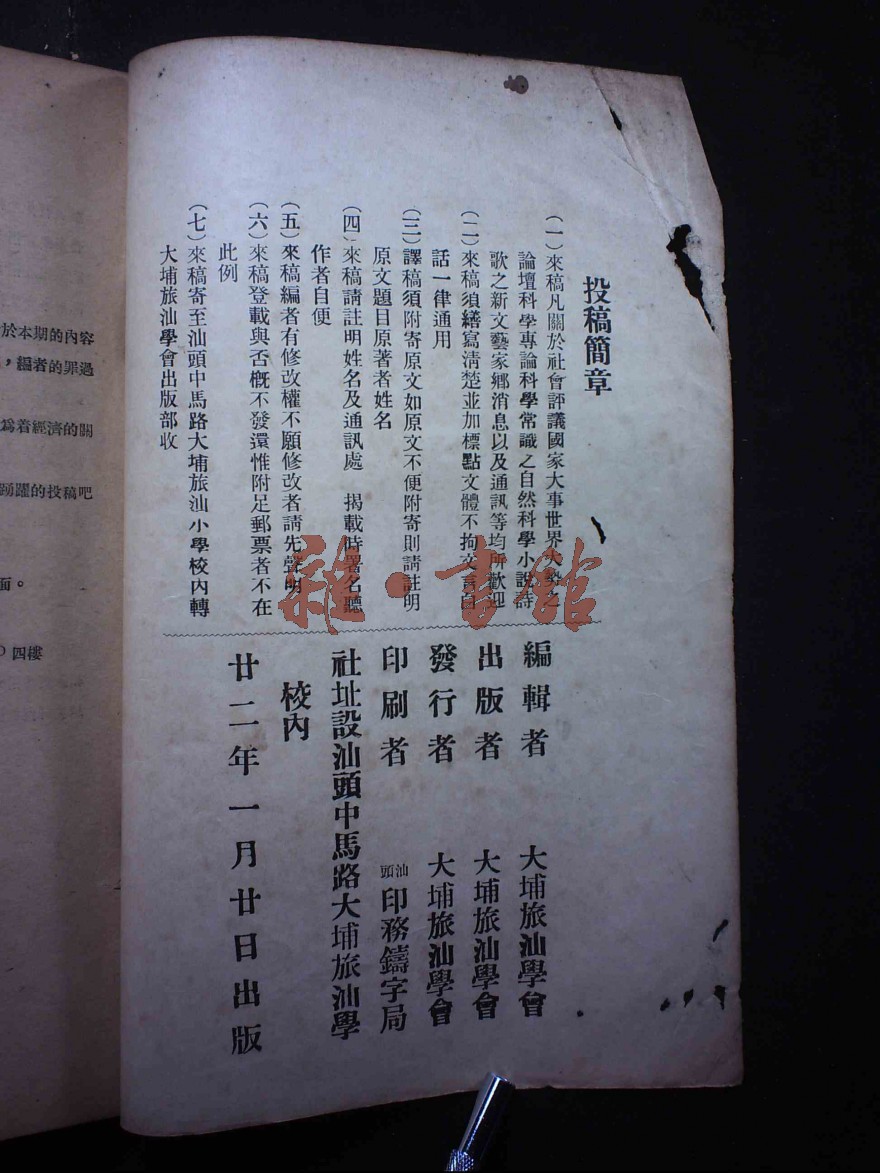 投稿簡章
(一)來稿凡關於社會評議國家大事世界大勢之
論壇科學專論科學常識之自然科學小說詩
歌之新文藝家鄉消息以及通訊等均所歡迎
(二)來稿須繕寫淸楚並加標點文體不拘文言白
話一律通用
(三)譯稿須附寄原文如原文不便附寄則請註明
原文題目原著者姓名
(四)來稿請註明姓名及通訊處 揭載時署名聽
作者自便
(五)來稿編者有修改權不願修改者請先聲明
(六)來稿登載與否槪不發還惟附足郵票者不在
此例
(七)來稿寄至汕頭中馬路大埔旅汕小學校內轉
大埔旅汕學會出版部收
編輯者 大埔旅汕學會
出版者 大埔旅汕學會
發行者 大埔旅汕學會
印刷者 汕頭印務鑄字局
社址設汕頭中馬路大埔旅汕學
校內
廿二年一月廿日出版
於本期的內容
，編者的罪過
爲着經濟的關
踴躍的投稿吧
面。
四樓
雜·書館